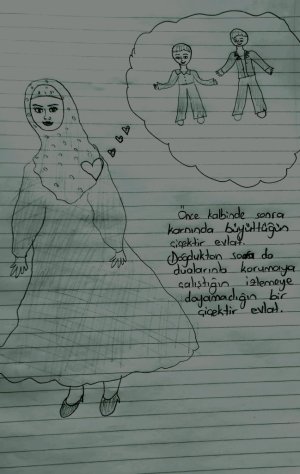 Önce kalbinde sonra
karnında büyüttüğün
çiçektir evlat.
Doğduktan sonra da
dualarınla korumaya
çalıştığın izlemeye
doyamadığın bir
çiçektir evlat.